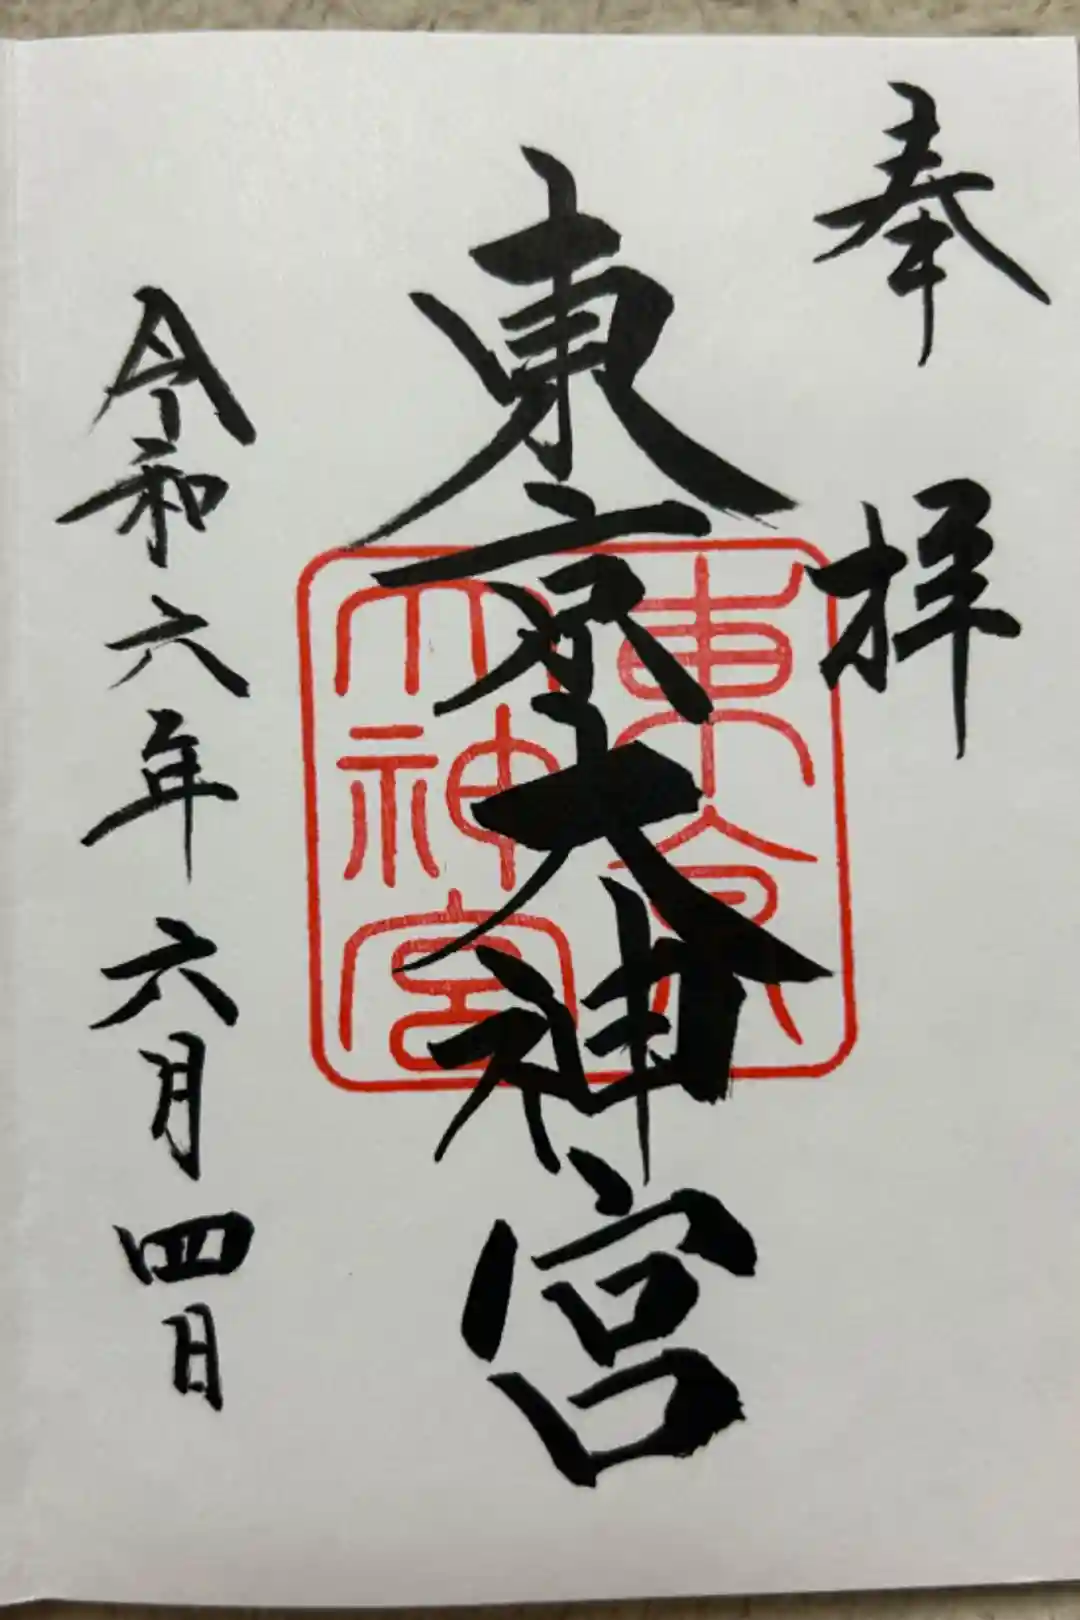 奉拝
東京大神宮
東京
大神宮
令和六年六月四日